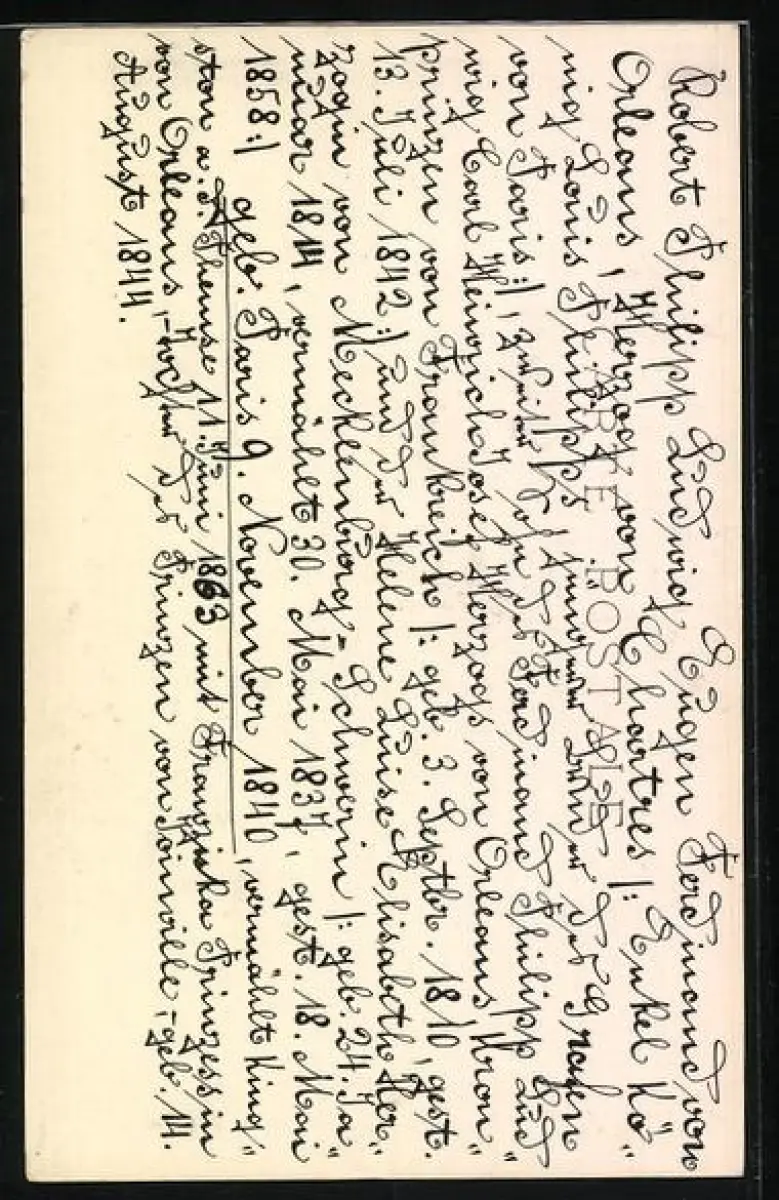 Robert Philipp Ludwig Eugen Ferdinand von
Orleans, Herzog von Chartres |: Enkel Kö„
nig Louis Philipps, jüngerer Bruder des Grafen
von Paris :|, zweiter Sohn des Ferdinand Philipp Lud„
wig Carl Heinrich Josef Herzogs von Orleans Kron„
prinzen von Frankreich |: geb. 3. Septbr. 1810, gest.
13. Juli 1842 :| und der Helene Luise Elisabeth Her„
zogin von Mecklenburg-Schwerin |: geb. 24. Ja„
nuar 1814, vermählt 30. Mai 1837, gest. 18. Mai
1858 :| geb. Paris 9. November 1840, vermählt King„
ston a. d. Themse 11. Juni 1863 mit Franziska Prinzessin
von Orleans, - Tochter des Prinzen von Joinville - geb. 14.
August 1844.
CARTE POSTALE